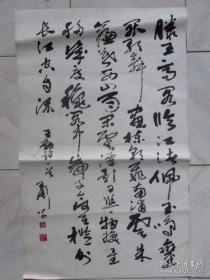 滕王高阁臨江渚佩玉鳴鸞
罷歌舞畫棟朝飛南浦雲朱
簾暮捲西山雨閑雲潭影日悠悠物換星
移幾度秋阁中帝子今何在檻外
長江空自流 王勃詩